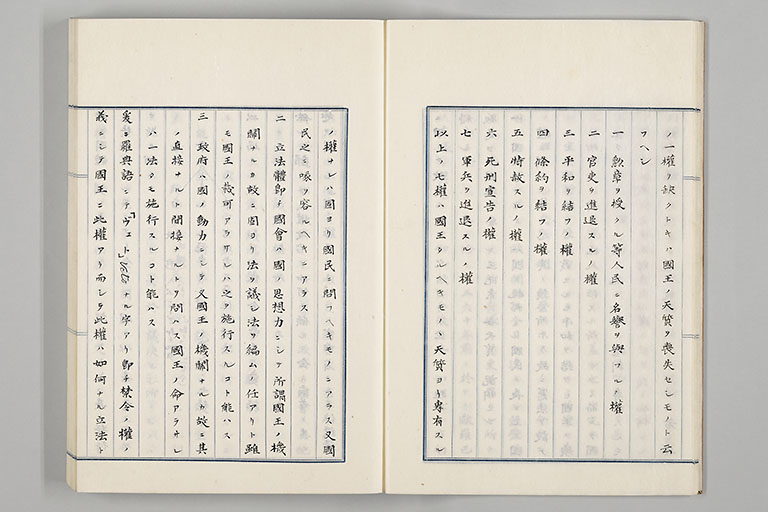 ノ一權ヲ缺クトキハ國王ノ天質ヲ喪失セシモノト云
フヘシ
一 勲章ヲ授クル等人民ニ名譽ヲ與フルノ權
二 官吏ヲ進退スルノ權
三 平和ヲ結フノ權
四 條約ヲ結フノ權
五 特赦スルノ權
六 死刑宣告ノ權
七 軍兵ヲ進退スルノ權
以上ノ七權ハ國王タルヘキモノハ天質ヨリ專有スル
ノ權ナレハ固ヨリ國民ニ問フヘキモノニアラス又國
民之ニ喙ヲ容ルヘキニアラス
二 立法體即チ國會ハ國ノ思想力ニシテ所謂國王ノ機
關ナルカ故ニ固ヨリ法ヲ議シ法ヲ編ムノ任アリト雖
モ國王ノ裁可アラサレハ之ヲ施行スルコト能ハス
三 政府ハ國ノ動力ニシテ又國王ノ機關ナルカ故ニ其
ノ直接ナルト間接ナルトヲ問ハス國王ノ命アラサレ
ハ一法タモ施行スルコト能ハス
爰ニ羅典語ニテ「ヴェト」veto ナル字アリ即チ禁令ノ權ノ
義ニシテ國王ニ此權アリ而シテ此權ハ如何ナル立法ト